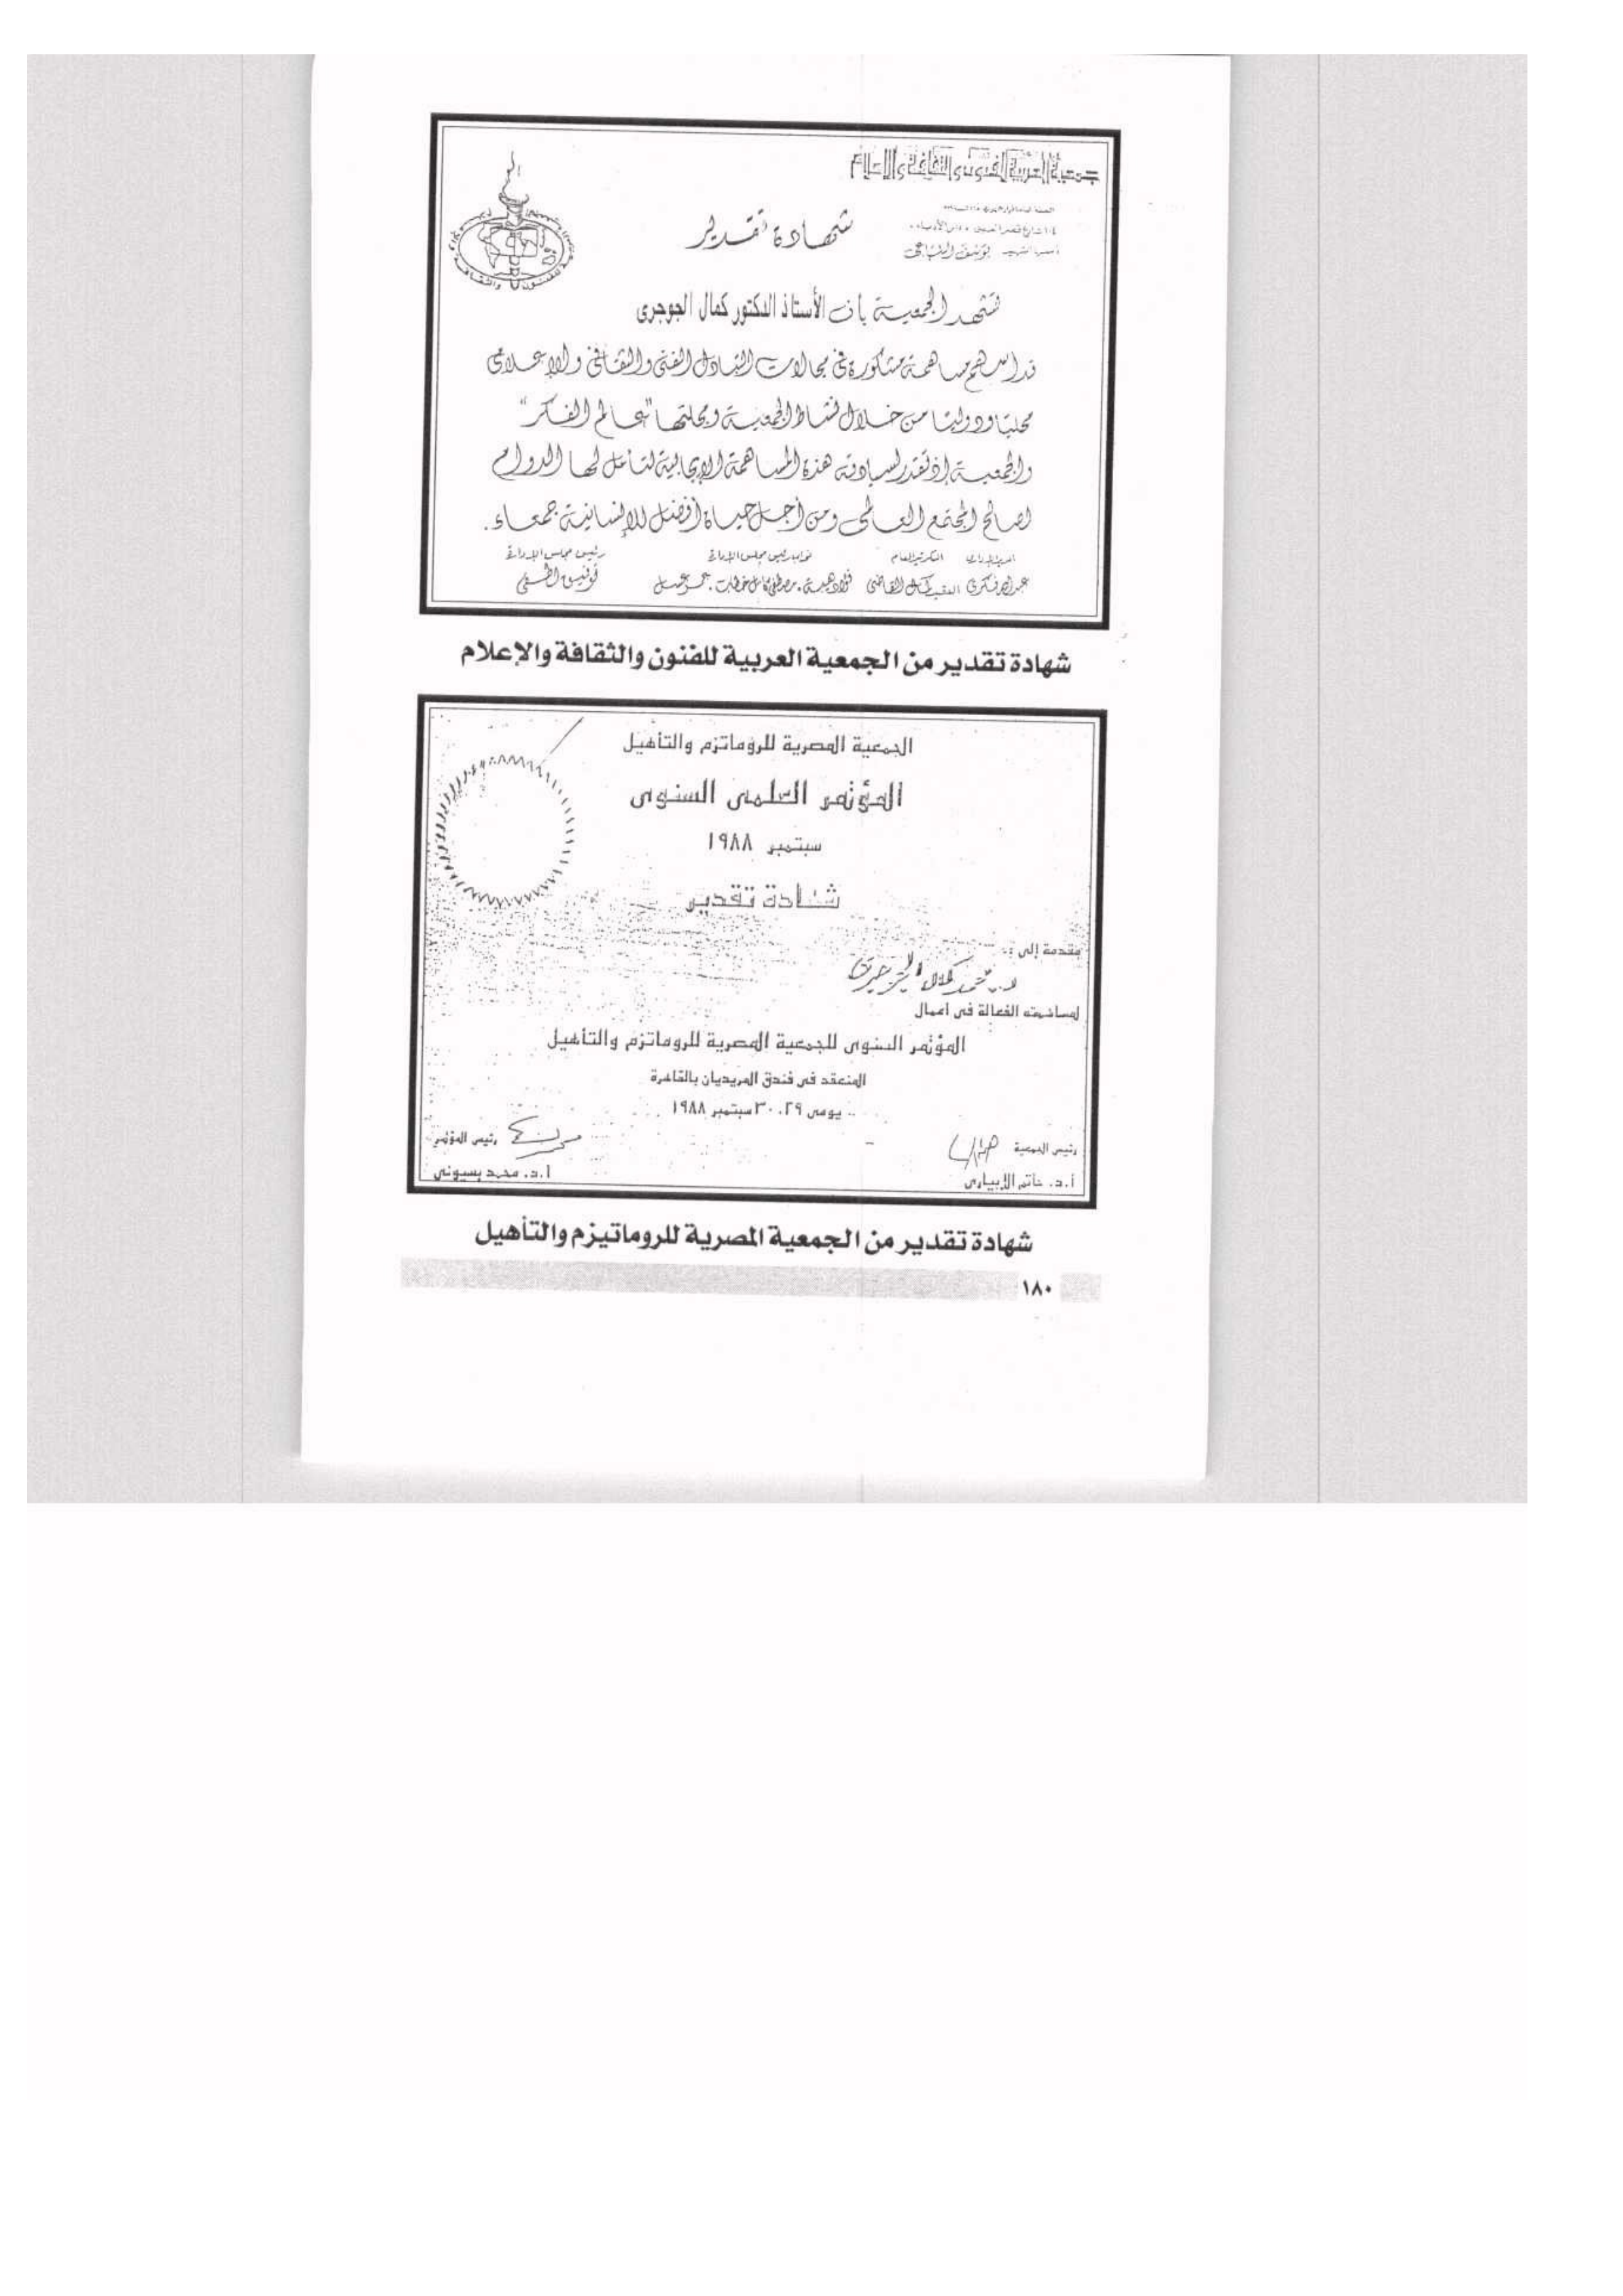 جمعية العربية للفنون والثقافة والإعلام
١٠٤ شارع قصر العينى
أسسها الشهيد يوسف السباعى
شهادة تقدير
تشهد الجمعية بأن الأستاذ الدكتور كمال الجوجرى
قد أسهم مساهمة مشكورة فى مجالات التبادل الفنى والثقافى والإعلامى
محليا ودوليا من خلال نشاط الجمعية ومجلتها "عالم الفكر"
والجمعية إذ تقدر لسيادته هذه المساهمة الإيجابية لتأمل لها الدوام
لصالح المجتمع العالمى ومن أجل حياة أفضل للإنسانية جمعاء.
السكرتير العام نواب رئيس مجلس الإدارة رئيس مجلس الإدارة
شهادة تقدير من الجمعية العربية للفنون والثقافة والإعلام
الجمعية المصرية للروماتزم والتأهيل
المؤتمر العلمى السنوى
سبتمبر ١٩٨٨
شهادة تقدير
مقدمة إلى :
د. محمد كمال الجوجرى
لمساهمته الفعالة فى أعمال
المؤتمر السنوى للجمعية المصرية للروماتزم والتأهيل
المنعقد فى فندق المريديان بالقاهرة
يومى ٢٩، ٣٠ سبتمبر ١٩٨٨
رئيس الجمعية رئيس المؤتمر
أ.د. حاتم الإبيارى أ.د. محمد بسيونى
شهادة تقدير من الجمعية المصرية للروماتيزم والتأهيل
١٨٠